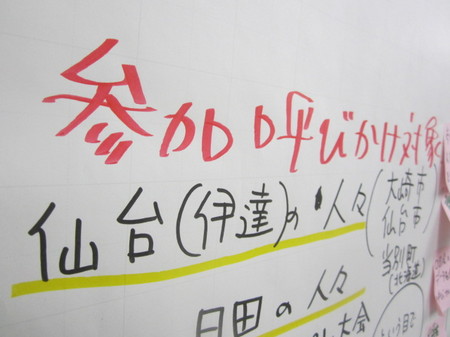 参加呼びかけ対象
仙台(伊達)の人々
(大崎市
仙台市
当別町
(北海道)
日田の人々
大会
という目で